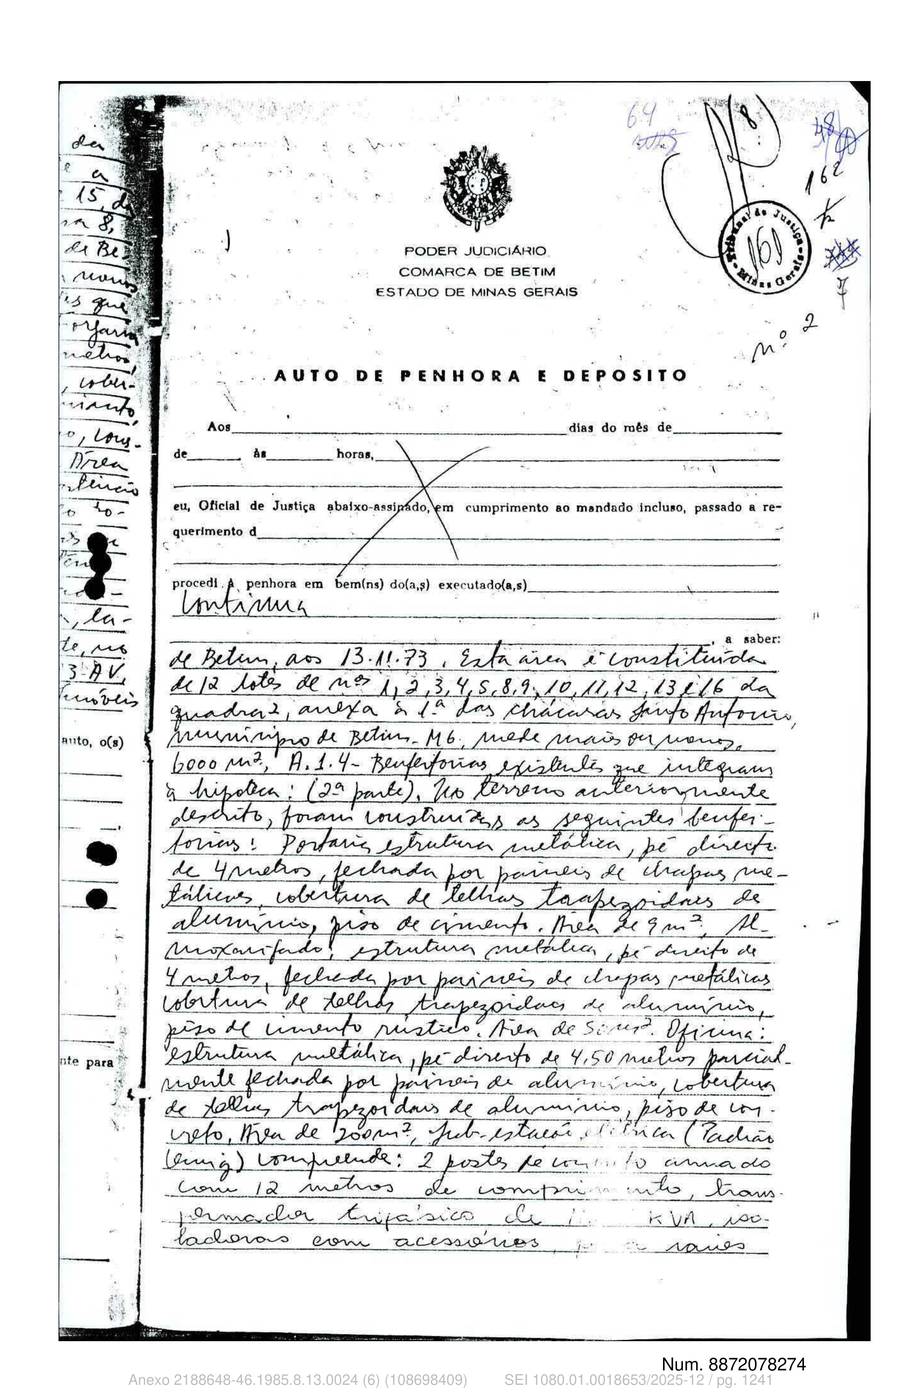 64
8
162
Tribunal de Justiça
161
Minas Gerais
nº 2
PODER JUDICIÁRIO
COMARCA DE BETIM
ESTADO DE MINAS GERAIS
AUTO DE PENHORA E DEPOSITO
Aos dias do mês de
de às horas,
eu, Oficial de Justiça abaixo-assinado, em cumprimento ao mandado incluso, passado a re-
querimento d
procedi à penhora em bem(ns) do(a,s) executado(a,s)
Continua
, a saber:
de Betim, aos 13.11.73. Esta área é constituída
de 12 lotes de nºs 1, 2, 3, 4, 5, 8, 9, 10, 11, 12, 13 e 16 da
quadra 2, anexa à 1ª das chácaras Santo Antonio,
município de Betim-MG. mede mais ou menos,
6000 m², A.1.4- Benfeitorias existentes que integram
à hipoteca: (2ª parte). No terreno anteriormente
descrito, foram construidas as seguintes benfei-
torias: Portaria, estrutura metálica, pé direito
de 4 metros, fechada por paineis de chapas me-
tálicas, cobertura de telhas trapezoidais de
aluminio, piso de cimento. Área de 9 m², Al-
moxarifado: estrutura metálica, pé direito de
4 metros, fechada por paineis de chapas metálicas
cobertura de telhas trapezoidais de aluminio,
piso de cimento rustico. Área de m². Oficina:
estrutura metálica, pé direito de 4,50 metros parcial-
mente fechada por paineis de aluminio, cobertura
de telhas trapezoidais de aluminio, piso de con-
creto, Área de 200m², Sub-estação elétrica (Padrão
Cemig) compreende: 2 postes de armado
com 12 metros de comprimento, trans-
formador trifásico de KVA, iso-
ladores com acessórios, raios
da
e a
15, da
8,
de Be-
menos
que
metros,
cober-
Área
la-
te, no
3-AV,
imóveis
auto, o(s)
nte para
Num. 8872078274
Anexo 2188648-46.1985.8.13.0024 (6) (108698409) SEI 1080.01.0018653/2025-12 / pg. 1241